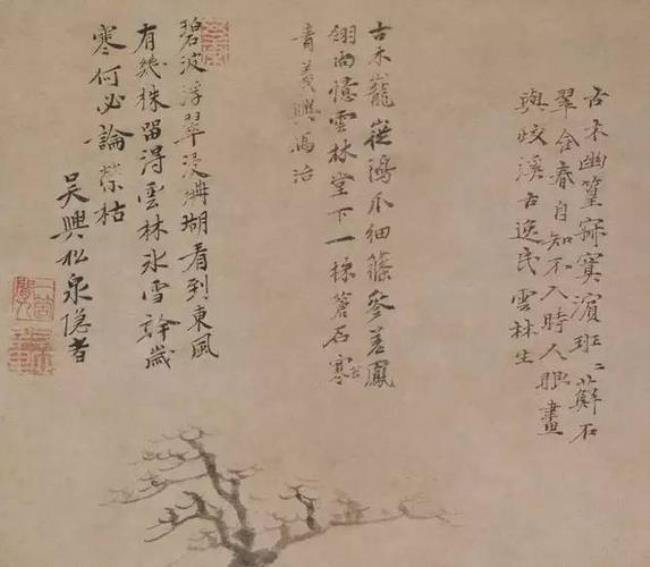 古木幽篁寂寞濱班〻蘚石
翠含春自知不入時人眼畫
與皎溪古逸民雲林生
古木巃嵸鴻爪細篠參差鳳
翎尚憶雲林堂下一株蒼石寒
青義興馬治
碧波浮翠浸珊瑚看到東風
有幾株留得雲林冰雪幹歲
寒何必論榮枯
吳興松泉隱者